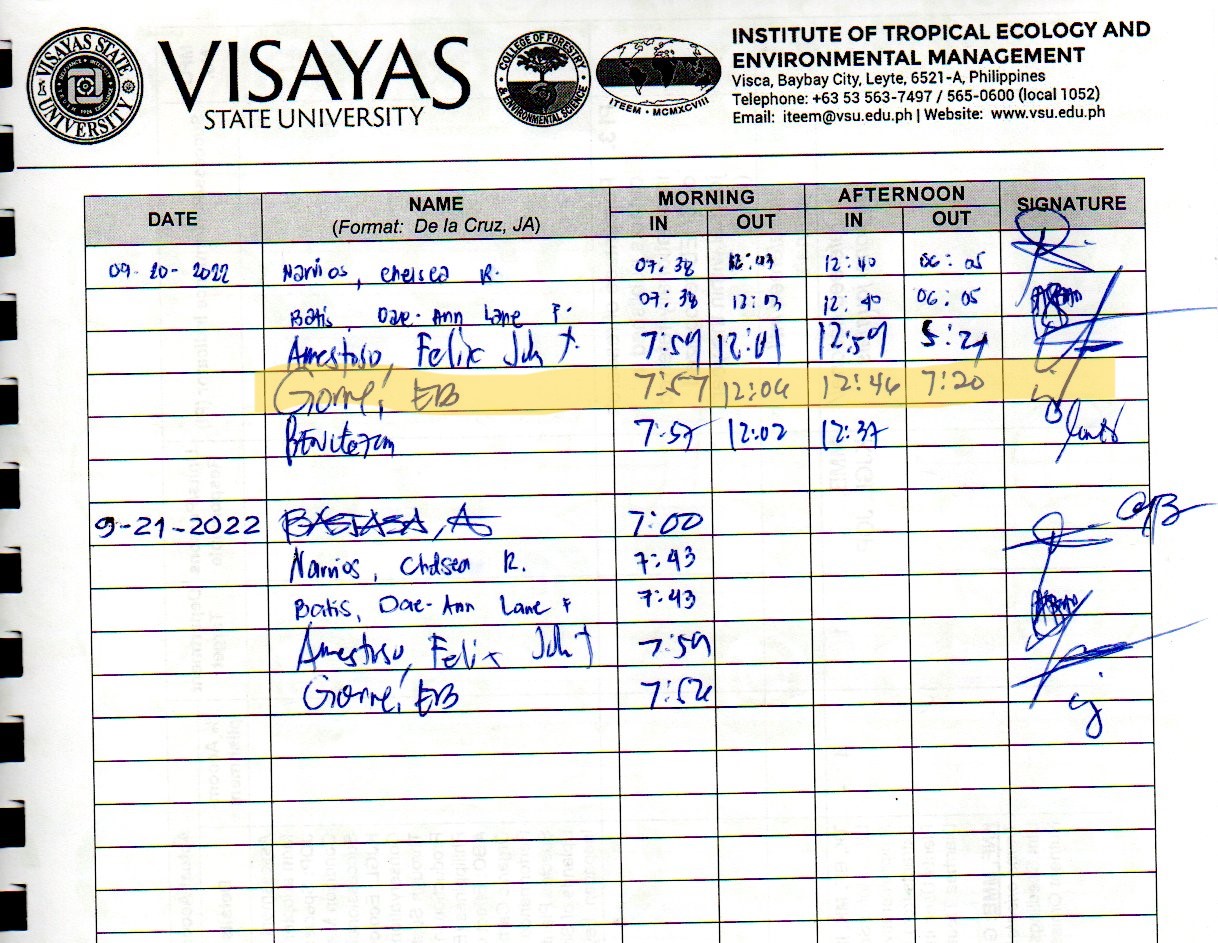 VISAYAS STATE UNIVERSITY
VISAYAS
STATE UNIVERSITY
COLLEGE OF FORESTRY & ENVIRONMENTAL SCIENCE
ITEEM • MCMXCVIII
INSTITUTE OF TROPICAL ECOLOGY AND
ENVIRONMENTAL MANAGEMENT
Visca, Baybay City, Leyte, 6521-A, Philippines
Telephone: +63 53 563-7497 / 565-0600 (local 1052)
Email: iteem@vsu.edu.ph | Website: www.vsu.edu.ph
DATE NAME MORNING AFTERNOON SIGNATURE
(Format: De la Cruz, JA) IN OUT IN OUT
09-20-2022 Narvios, Chelsea R. 07:38 12:03 12:40 06:05
Batis, Dae-Ann Lane F. 07:38 12:03 12:40 06:05
Amestoso, Felix Joh T. 7:59 12:01 12:59 5:21
Gorre, EB 7:57 12:06 12:46 7:20
7:57 12:02 12:37
9-21-2022 BASTASA, A 7:00
Narvios, Chelsea R. 7:43
Batis, Dae-Ann Lane F 7:43
Amestoso, Felix Joh T 7:59
Gorre, EB 7:56